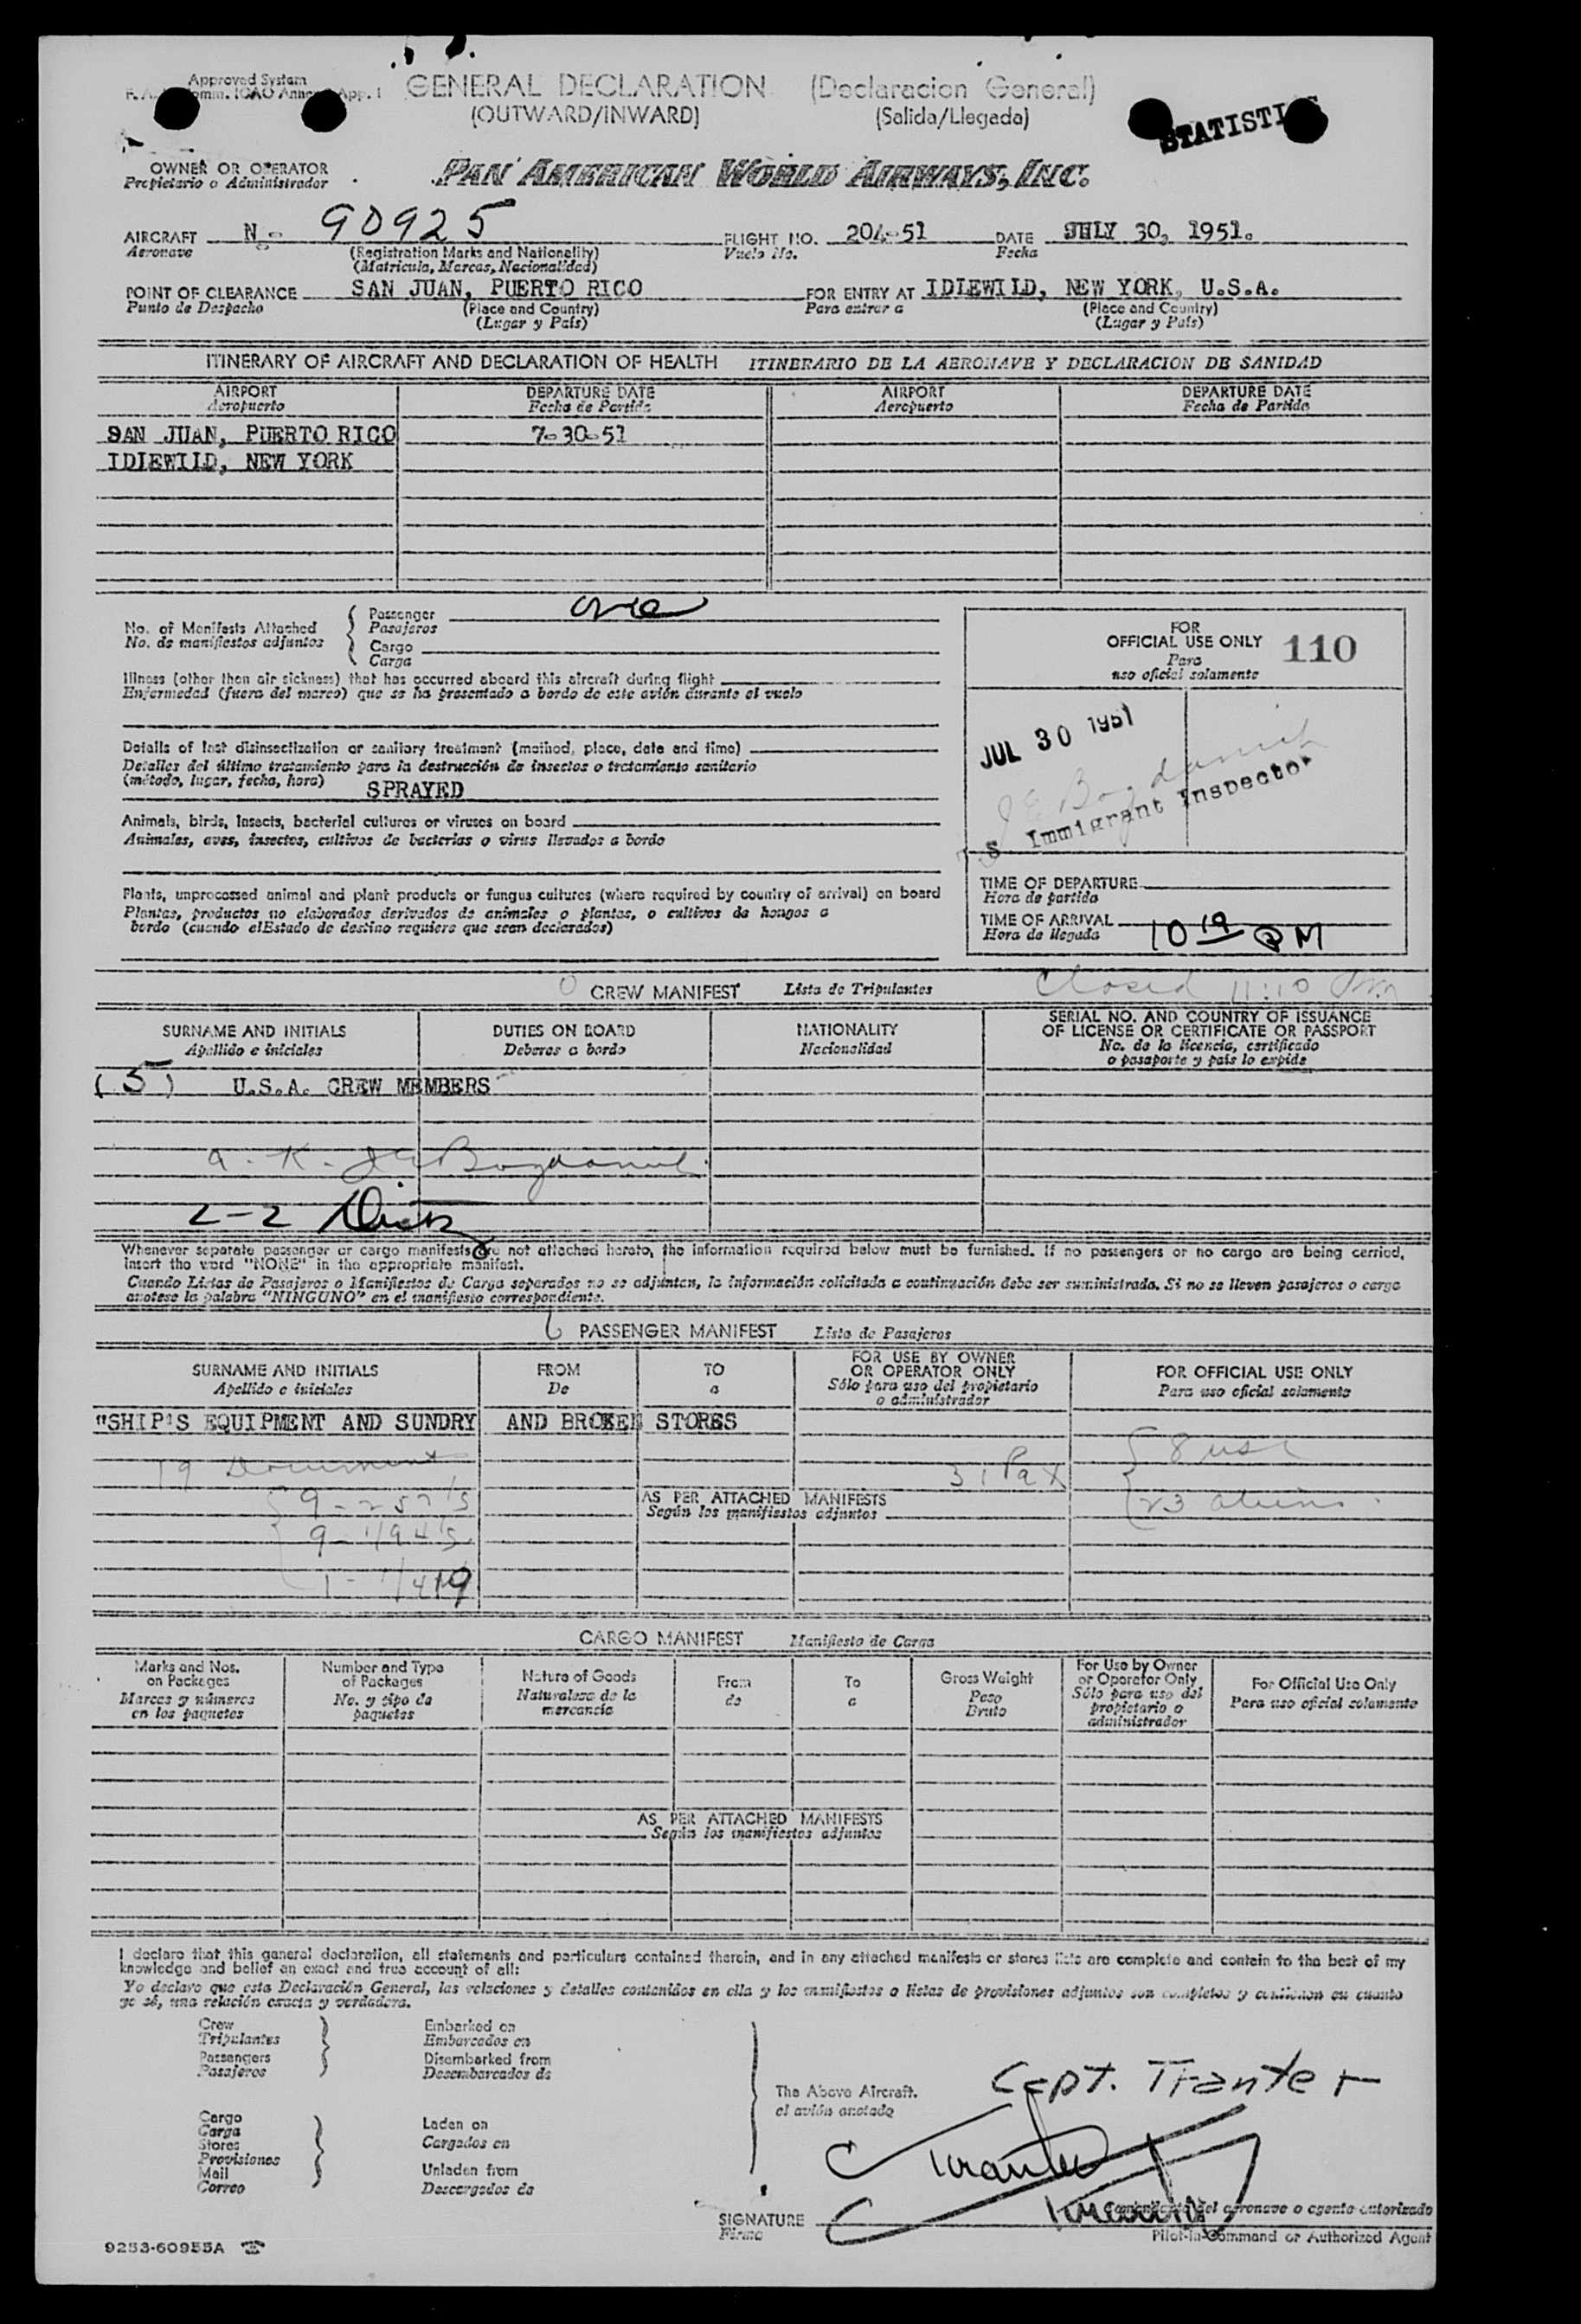 Approved System
GENERAL DECLARATION (Declaracion General)
(OUTWARD/INWARD) (Salida/Llegada)
OWNER OR OPERATOR
Propietario o Administrador
PAN AMERICAN WORLD AIRWAYS, INC.
AIRCRAFT N - 90925 FLIGHT NO. 204-51 DATE JULY 30, 1951.
Aeronave (Registration Marks and Nationality) Vuelo No. Fecha
(Matricula, Marcas, Nacionalidad)
POINT OF CLEARANCE SAN JUAN, PUERTO RICO FOR ENTRY AT IDLEWILD, NEW YORK, U.S.A.
Punto de Despacho (Place and Country) Para entrar a (Place and Country)
(Lugar y País) (Lugar y País)
ITINERARY OF AIRCRAFT AND DECLARATION OF HEALTH ITINERARIO DE LA AERONAVE Y DECLARACION DE SANIDAD
AIRPORT DEPARTURE DATE AIRPORT DEPARTURE DATE
Aeropuerto Fecha de Partida Aeropuerto Fecha de Partida
SAN JUAN, PUERTO RICO 7-30-51
IDLEWILD, NEW YORK
No. of Manifests Attached
No. de manifiestos adjuntos
Passenger one
Pasajeros
Cargo
Carga
Illness (other than air sickness) that has occurred aboard this aircraft during flight
Enfermedad (fuera del mareo) que se ha presentado a bordo de este avión durante el vuelo
Details of last disinsectization or sanitary treatment (method, place, date and time)
Detalles del último tratamiento para la destrucción de insectos o tratamiento sanitario
(método, lugar, fecha, hora) SPRAYED
Animals, birds, insects, bacterial cultures or viruses on board
Animales, aves, insectos, cultivos de bacterias o virus llevados a bordo
Plants, unprocessed animal and plant products or fungus cultures (where required by country of arrival) on board
Plantas, productos no elaborados derivados de animales o plantas, o cultivos de hongos a
bordo (cuando elEstado de destino requiere que sean declarados)
FOR
OFFICIAL USE ONLY 110
Para
uso oficial solamente
JUL 30 1951
Immigrant Inspector
TIME OF DEPARTURE
Hora de partida
TIME OF ARRIVAL 10 19 PM
Hora de llegada
Closed 11:10 Pm
CREW MANIFEST Lista de Tripulantes
SURNAME AND INITIALS DUTIES ON BOARD NATIONALITY SERIAL NO. AND COUNTRY OF ISSUANCE
OF LICENSE OR CERTIFICATE OR PASSPORT
Apellido e iniciales Deberes a bordo Nacionalidad No. de la licencia, certificado
o pasaporte y país lo expide
(5) U.S.A. CREW MEMBERS
2-2
Whenever separate passenger or cargo manifests are not attached hereto, the information required below must be furnished. If no passengers or no cargo are being carried,
insert the word "NONE" in the appropriate manifest.
Cuando Listas de Pasajeros o Manifiestos de Carga separados no se adjuntan, la información solicitada a continuación debe ser suministrada. Si no se lleven pasajeros o carga
anotese la palabra "NINGUNO" en el manifiesto correspondiente.
PASSENGER MANIFEST Lista de Pasajeros
SURNAME AND INITIALS FROM TO FOR USE BY OWNER
OR OPERATOR ONLY FOR OFFICIAL USE ONLY
Apellido e iniciales De a Sólo para uso del propietario
o administrador Para uso oficial solamente
"SHIP'S EQUIPMENT AND SUNDRY AND BROKEN STORES
19 Documents 31 Pax 8 usc
9 - 257's 23 aliens
AS PER ATTACHED MANIFESTS
Según los manifiestos adjuntos
CARGO MANIFEST Manifiesto de Carga
Marks and Nos.
on Packages
Marcas y números
en los paquetes
Number and Type
of Packages
No. y tipo de
paquetes
Nature of Goods
Naturaleza de la
mercancía
From
de
To
a
Gross Weight
Peso
Bruto
For Use by Owner
or Operator Only
Sólo para uso del
propietario o
administrador
For Official Use Only
Para uso oficial solamente
AS PER ATTACHED MANIFESTS
Según los manifiestos adjuntos
I declare that this general declaration, all statements and particulars contained therein, and in any attached manifests or stores lists are complete and contain to the best of my
knowledge and belief an exact and true account of all:
Yo declaro que esta Declaración General, las relaciones y detalles contenidos en ella y los manifiestos o listas de provisiones adjuntos son completos y contienen en cuanto
yo sé, una relación exacta y verdadera.
Crew
Tripulantes
Passengers
Pasajeros
Embarked on
Embarcados en
Disembarked from
Desembarcados de
Cargo
Carga
Stores
Provisiones
Mail
Correo
Laden on
Cargados en
Unladen from
Descargados de
The Above Aircraft.
el avión anotado
Capt. Tranter
SIGNATURE
Firma
Comandante del aeronave o agente autorizado
Pilot-in-Command or Authorized Agent
9253-60955A